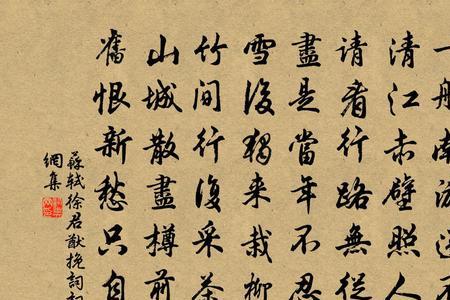 一舸南游遂不
清江赤壁照人
請看行路無從
盡是當年不忍
雪後獨来栽柳
竹間行復采茶
山城散盡樽前
舊恨新愁只自
蘇軾徐君猷挽詞
網集